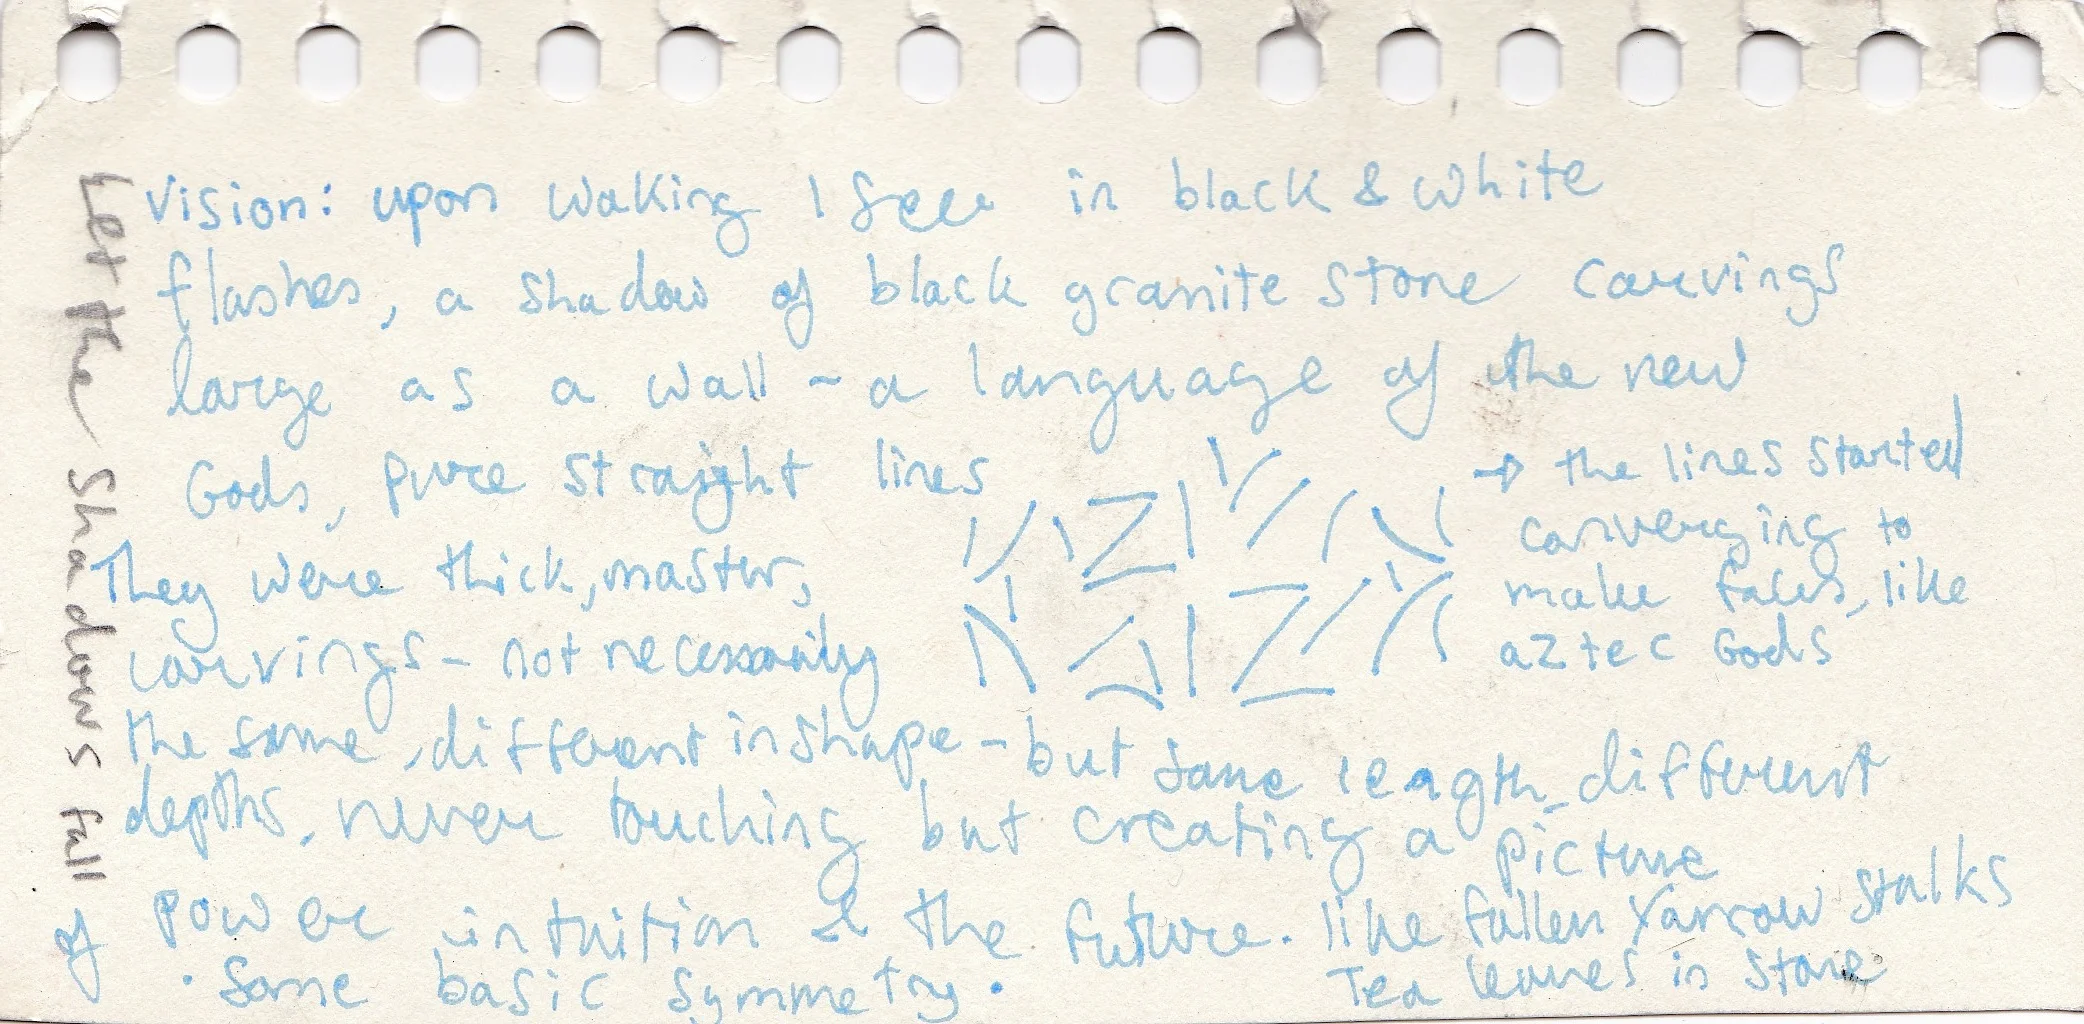 Let the Shadows fall
Vision: upon waking I see in black & white
flashes, a shadow of black granite stone carvings
large as a wall - a language of the new
Gods, pure straight lines
They were thick, master,
carvings - not necessarily
→ the lines started
converging to
make faces, like
aztec Gods
the same, different in shape - but same length, different
depths, never touching but creating a picture
of power intuition & the future. like fallen Yarrow stalks
Tea leaves in stone
· Same basic symmetry.